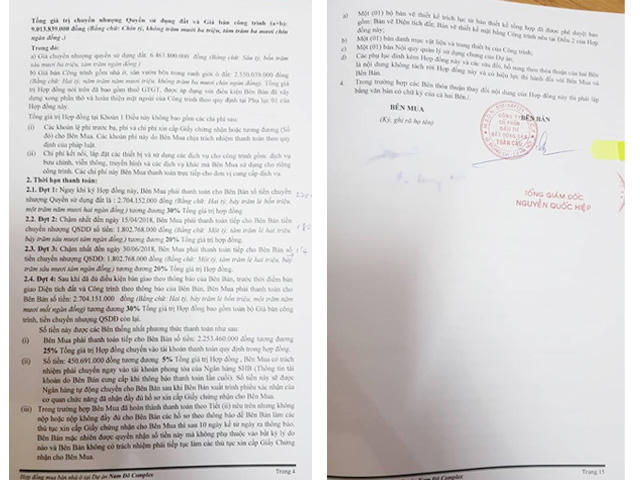 Tổng giá trị chuyển nhượng Quyền sử dụng đất và Giá bán công trình (a+b):
9.013.839.000 đồng (Bằng chữ: Chín tỷ, không trăm mười ba triệu, tám trăm ba mươi chín
ngàn đồng.)
Trong đó:
a) Giá chuyển nhượng quyền sử dụng đất: đồng (Bằng chữ: Sáu tỷ, bốn trăm
sáu mươi ba triệu, tám trăm ngàn đồng)
b) Giá bán Công trình gồm nhà ở, sân vườn bên trong ranh giới ô đất: 2.550.039.000 đồng
(Bằng chữ: Hai tỷ, năm trăm năm mươi triệu, không trăm ba mươi chín ngàn đồng). Tổng giá
trị Hợp đồng nói trên đã bao gồm thuế GTGT, được áp dụng với điều kiện Bên Bán đã xây
dựng xong phần thô và hoàn thiện mặt ngoài của Công trình theo quy định tại Phụ lục 01 của
Hợp đồng này.
Tổng giá trị Hợp đồng tại Khoản 1 Điều này không bao gồm các chi phí sau:
(i) Các khoản lệ phí trước bạ, phí và chi phí xin cấp Giấy chứng nhận hoặc tương đương (Sổ
đỏ) cho Bên Mua. Các khoản phí này do Bên Mua chịu trách nhiệm thanh toán theo quy
định của pháp luật.
(ii) Chi phí kết nối, lắp đặt các thiết bị và sử dụng các dịch vụ cho công trình gồm: dịch vụ
bưu chính, viễn thông, truyền hình và các dịch vụ khác mà Bên Mua sử dụng cho riêng
công trình. Các chi phí này Bên Mua thanh toán trực tiếp cho đơn vị cung cấp dịch vụ.
2. Thời hạn thanh toán:
2.1. Đợt 1: Ngay khi ký Hợp đồng này, Bên Mua phải thanh toán cho Bên Bán số tiền chuyển
nhượng Quyền sử dụng đất là: 2.704.152.000 đồng (Bằng chữ: Hai tỷ, bảy trăm lẻ bốn triệu,
một trăm năm mươi hai ngàn đồng) tương đương 30% Tổng giá trị hợp đồng
2.2. Đợt 2: Chậm nhất đến ngày 15/04/2018, Bên Mua phải thanh toán tiếp cho Bên Bán tiền
chuyển nhượng QSDĐ số tiền: 1.802.768.000 đồng (Bằng chữ: Một tỷ, tám trăm lẻ hai triệu,
bảy trăm sáu mươi tám ngàn đồng) tương đương 20% Tổng giá trị hợp đồng.
2.3. Đợt 3: Chậm nhất đến ngày 30/06/2018, Bên Mua phải thanh toán tiếp cho Bên Bán số
tiền chuyển nhượng QSDĐ: 1.802.768.000 đồng (Bằng chữ: Một tỷ, tám trăm lẻ hai triệu, bảy
trăm sáu mươi tám ngàn đồng) tương đương 20% Tổng giá trị Hợp đồng.
2.4. Đợt 4: Sau khi đã đủ điều kiện bàn giao theo thông báo của Bên Bán, trước thời điểm bàn
giao Diện tích đất và Công trình theo thông báo của Bên Bán, Bên Mua phải thanh toán cho
Bên Bán số tiền: 2.704.151.000 đồng (Bằng chữ: Hai tỷ, bảy trăm lẻ bốn triệu, một trăm năm
mươi mốt ngàn đồng) tương đương 30% Tổng giá trị Hợp đồng bao gồm toàn bộ Giá bán công
trình, tiền chuyển nhượng QSDĐ còn lại.
Số tiền này được các Bên thống nhất phương thức thanh toán như sau:
(i) Bên Mua phải thanh toán tiếp cho Bên Bán số tiền: 2.253.460.000 đồng tương đương
25% Tổng giá trị Hợp đồng chuyển vào tài khoản thanh toán quy định trong hợp đồng.
(ii) Số tiền: 450.691.000 đồng tương đương 5% Tổng giá trị Hợp đồng, Bên Mua có trách
nhiệm phải chuyển ngay vào tài khoản phong tỏa của Ngân hàng SHB (Thông tin tài
khoản do Bên Bán cung cấp khi thông báo thanh toán lần cuối). Số tiền này sẽ được
Ngân hàng tự động chuyển cho Bên Bán sau khi Bên Bán xuất trình phiếu xác nhận của
cơ quan chức năng đã nhận đầy đủ hồ sơ xin cấp Giấy chứng nhận cho Bên Mua.
(iii) Trong trường hợp Bên Mua đã hoàn thành thanh toán theo Tiết (ii) nêu trên nhưng không
nộp hoặc nộp không đầy đủ cho Bên Bán các hồ sơ theo thông báo để Bên Bán làm các
thủ tục xin cấp Giấy chứng nhận cho Bên Mua thì sau 10 ngày kể từ ngày ra thông báo,
Bên Bán mặc nhiên được quyền nhận số tiền này mà không phụ thuộc vào bất kỳ lý do
nào và Bên Bán không có trách nhiệm phải tiếp tục làm các thủ tục xin cấp Giấy Chứng
nhận cho Bên Mua.
Hợp đồng mua bán nhà ở tại Dự án Nam Đô Complex
Trang 4
a) Một (01) bộ bản vẽ thiết kế trích lục từ bản thiết kế tổng hợp đã được phê duyệt bao
gồm: Bản vẽ Diện tích đất, Bản vẽ thiết kế mặt bằng Công trình nêu tại Điều 2 của Hợp
đồng này;
b) Một (01) bản danh mục vật liệu và trang thiết bị của Công trình;
c) Một (01) bản Nội quy quản lý sử dụng chung của Dự án;
d) Các phụ lục đính kèm Hợp đồng này và các sửa đổi, bổ sung theo thỏa thuận của hai Bên
là nội dung không tách rời Hợp đồng này và có hiệu lực thi hành đối với Bên Mua và
Bên Bán.
4. Trong trường hợp các Bên thỏa thuận thay đổi nội dung của Hợp đồng này thì phải lập
bằng văn bản có chữ ký của cả hai Bên./.
BÊN MUA
BÊN BÁN
(Ký, ghi rõ họ tên)
CÔNG TY
CỔ PHẦN
ĐẦU TƯ
BẤT ĐỘNG SẢN
TOÀN CẦU
TỔNG GIÁM ĐỐC
NGUYỄN QUỐC HIỆP
Trang 15